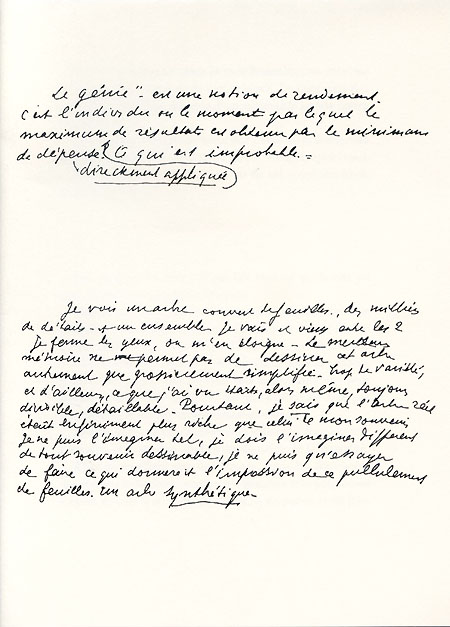 Le génie" - est une notion de rendement.
C'est l'individu ou le moment par lequel le
maximum de résultat est obtenu par le minimum
de dépense. Ce qui est improbable. =
directement appliquée
Je vois un arbre couvert de feuilles, des milliers
de détails - et un ensemble. Je vais et viens entre les 2
Je ferme les yeux, on m'en éloigne - Le meilleur
mémoire ne permet pas de dessiner cet arbre
autrement que grossièrement simplifié - trop de variété,
et d'ailleurs, ce que j'ai vu était, alors même, toujours
divisible, détaillable - Pourtant, je sais que l'arbre réel
était infiniment plus riche que celui de mon souvenir
Je ne puis l'imaginer tel, je dois l'imaginer différent
de tout souvenir dessinable, je ne puis qu'essayer
de faire ce qui donnerait l'impression de ce pullulement
de feuilles. Un arbre synthétique -